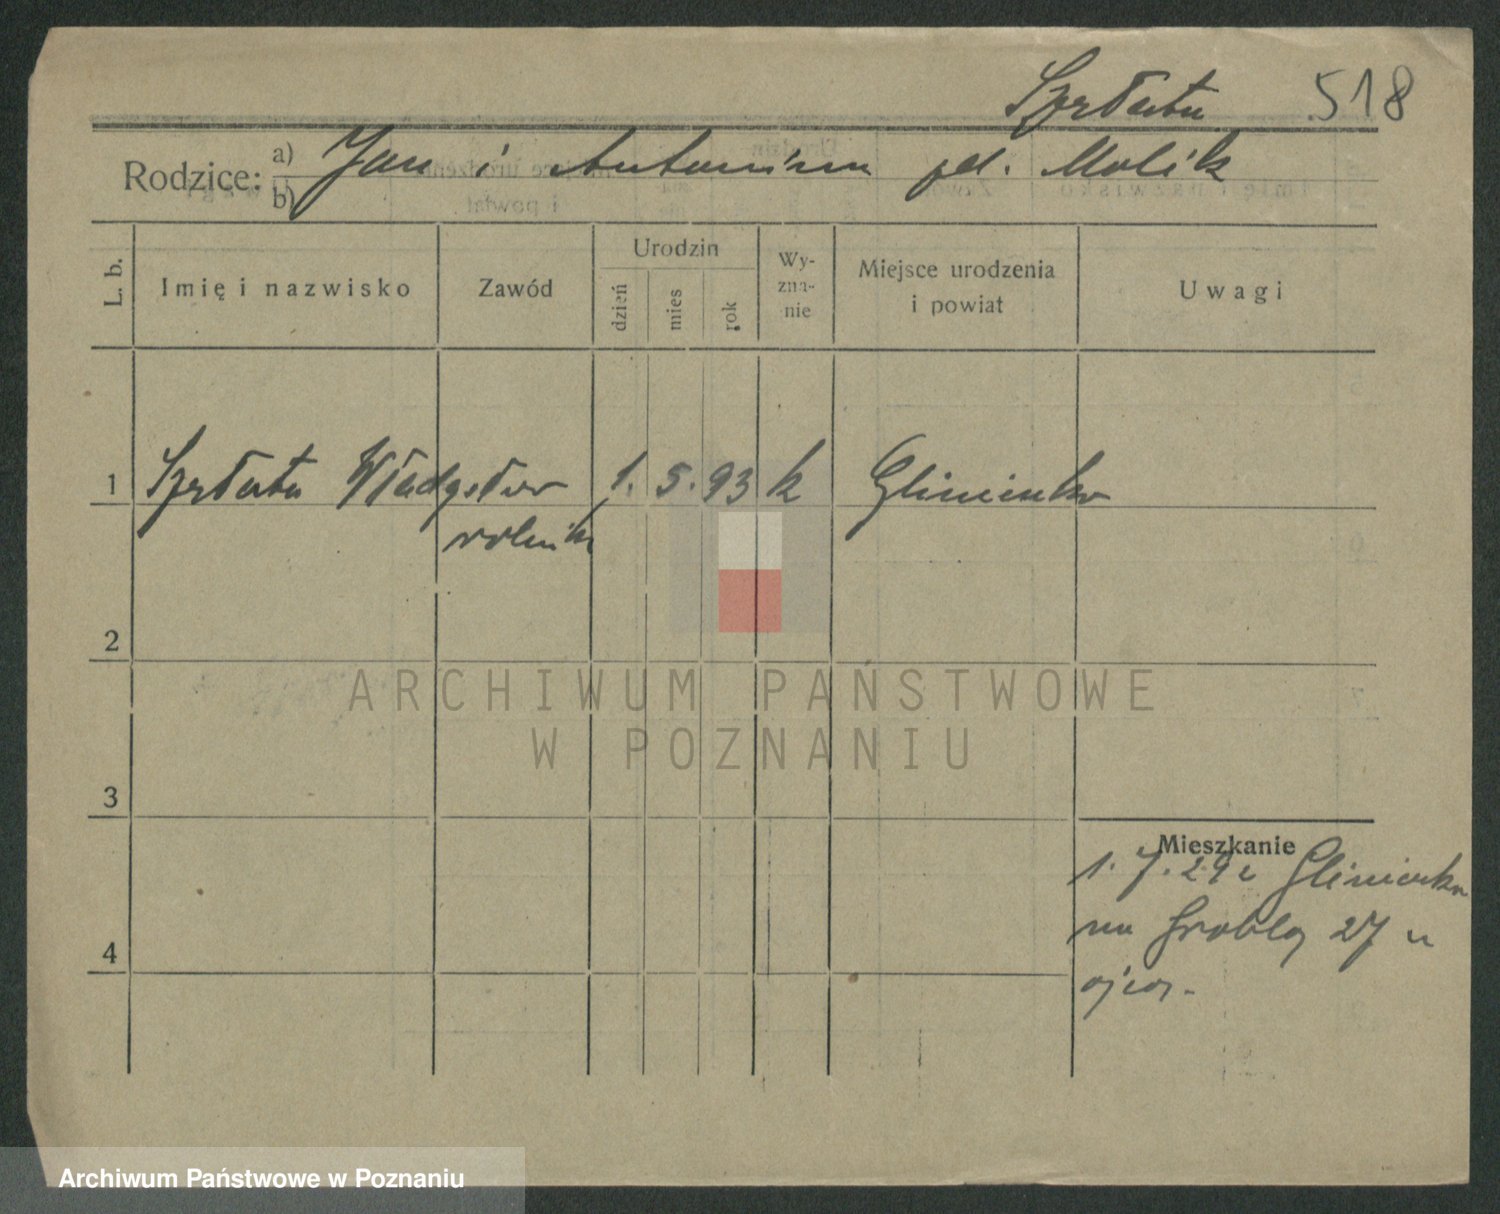 Szpłata 518
Rodzice: a) Jan i Antonina zd. Molik
b)
L. b. Imię i nazwisko Zawód Urodzin dzień mies rok Wy-zna-nie Miejsce urodzenia i powiat Uwagi
1 Władysław 1. 5. 93 k Glinienko
rolnik
2
ARCHIWUM PAŃSTWOWE
W POZNANIU
3
Mieszkanie
1. 7. 29 z Glinienka
na Groblę 27 u
4
ojca.
Archiwum Państwowe w Poznaniu